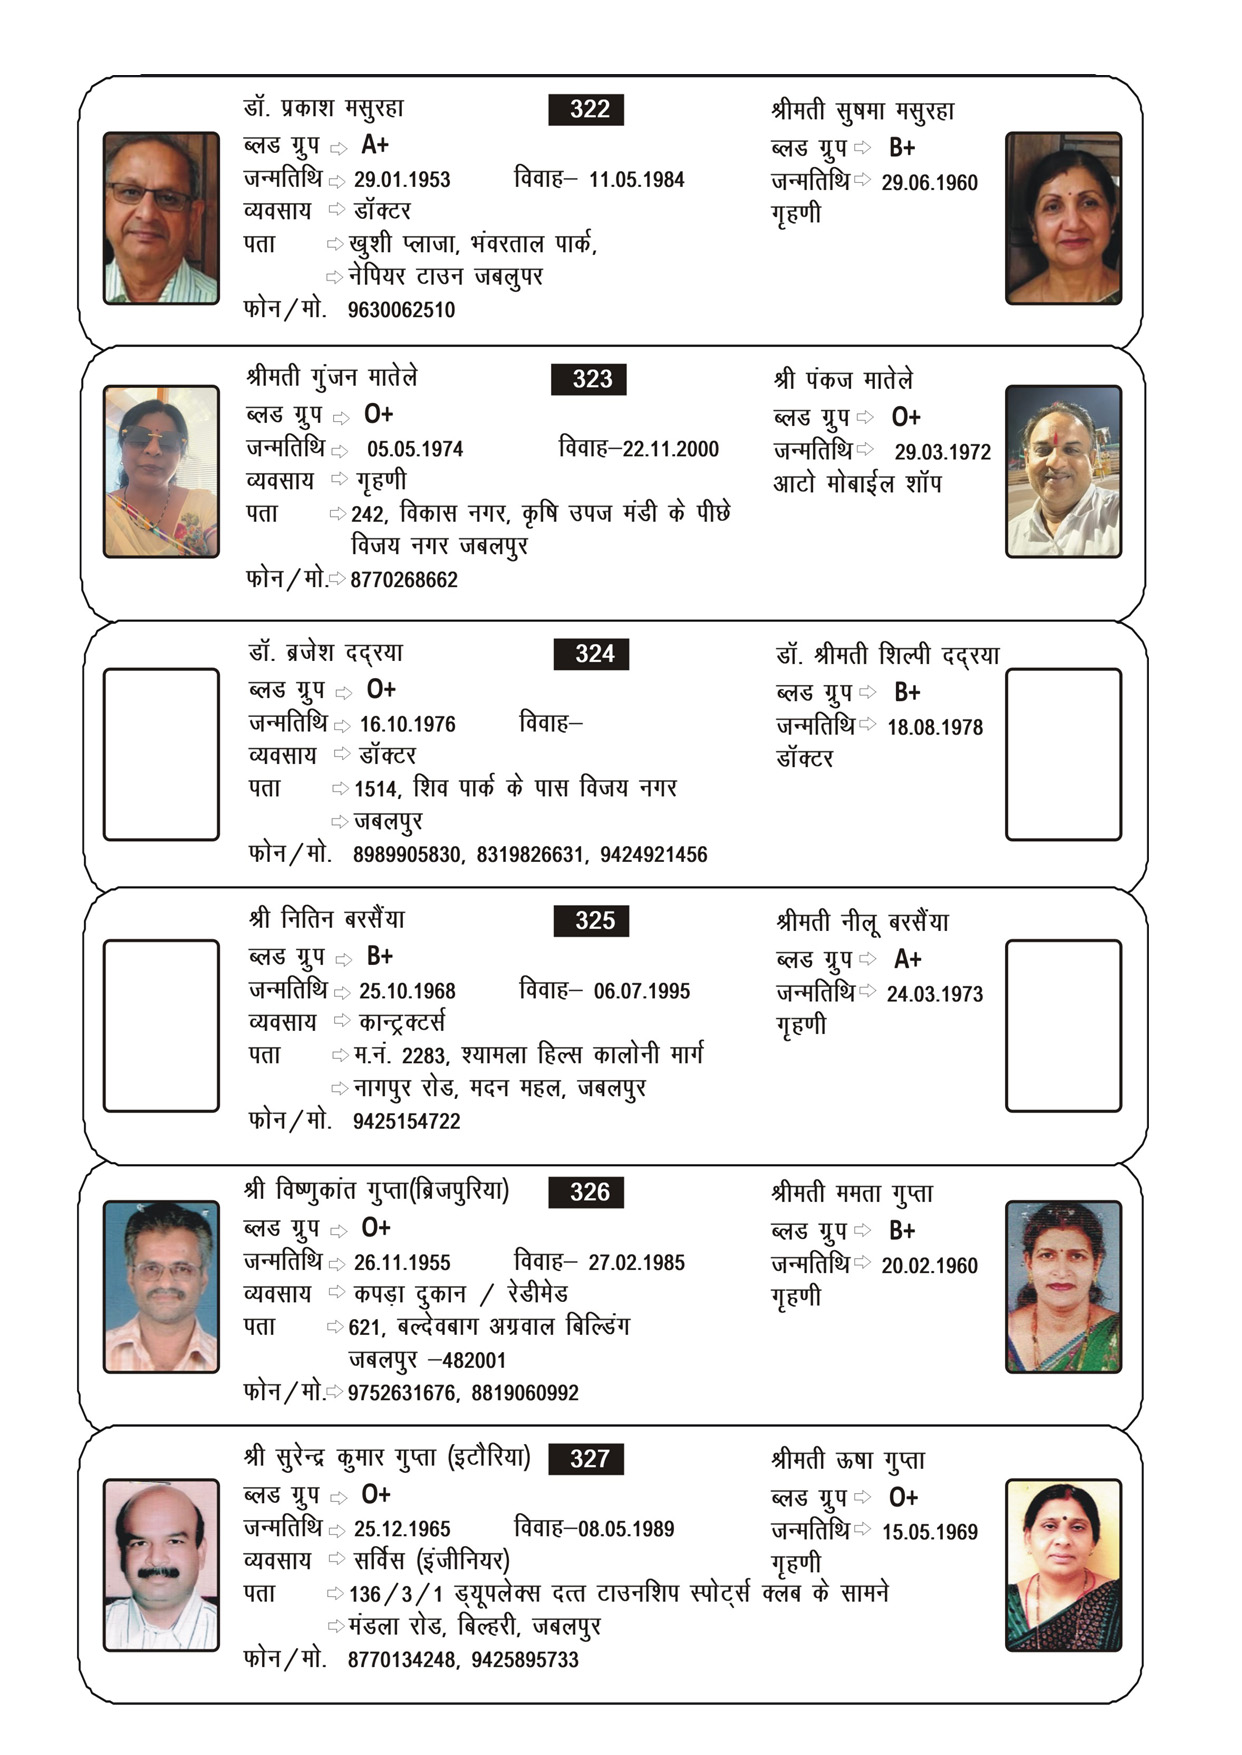 डॉ. प्रकाश मसुरहा 322 श्रीमती सुषमा मसुरहा
ब्लड ग्रुप ⇨ A+ ब्लड ग्रुप ⇨ B+
जन्मतिथि ⇨ 29.01.1953 विवाह– 11.05.1984 जन्मतिथि ⇨ 29.06.1960
व्यवसाय ⇨ डॉक्टर गृहणी
पता ⇨ खुशी प्लाजा, भंवरताल पार्क,
⇨ नेपियर टाउन जबलुपर
फोन/मो. 9630062510
श्रीमती गुंजन मातेले 323 श्री पंकज मातेले
ब्लड ग्रुप ⇨ O+ ब्लड ग्रुप ⇨ O+
जन्मतिथि ⇨ 05.05.1974 विवाह–22.11.2000 जन्मतिथि ⇨ 29.03.1972
व्यवसाय ⇨ गृहणी आटो मोबाईल शॉप
पता ⇨ 242, विकास नगर, कृषि उपज मंडी के पीछे
विजय नगर जबलपुर
फोन/मो.⇨ 8770268662
डॉ. ब्रजेश दद्रया 324 डॉ. श्रीमती शिल्पी दद्रया
ब्लड ग्रुप ⇨ O+ ब्लड ग्रुप ⇨ B+
जन्मतिथि ⇨ 16.10.1976 विवाह– जन्मतिथि ⇨ 18.08.1978
व्यवसाय ⇨ डॉक्टर डॉक्टर
पता ⇨ 1514, शिव पार्क के पास विजय नगर
⇨ जबलपुर
फोन/मो. 8989905830, 8319826631, 9424921456
श्री नितिन बरसैंया 325 श्रीमती नीलू बरसैंया
ब्लड ग्रुप ⇨ B+ ब्लड ग्रुप ⇨ A+
जन्मतिथि ⇨ 25.10.1968 विवाह– 06.07.1995 जन्मतिथि ⇨ 24.03.1973
व्यवसाय ⇨ कान्ट्रक्टर्स गृहणी
पता ⇨ म.नं. 2283, श्यामला हिल्स कालोनी मार्ग
⇨ नागपुर रोड, मदन महल, जबलपुर
फोन/मो. 9425154722
श्री विष्णुकांत गुप्ता(ब्रिजपुरिया) 326 श्रीमती ममता गुप्ता
ब्लड ग्रुप ⇨ O+ ब्लड ग्रुप ⇨ B+
जन्मतिथि ⇨ 26.11.1955 विवाह– 27.02.1985 जन्मतिथि ⇨ 20.02.1960
व्यवसाय ⇨ कपड़ा दुकान / रेडीमेड गृहणी
पता ⇨ 621, बल्देवबाग अग्रवाल बिल्डिंग
जबलपुर –482001
फोन/मो.⇨ 9752631676, 8819060992
श्री सुरेन्द्र कुमार गुप्ता (इटौरिया) 327 श्रीमती ऊषा गुप्ता
ब्लड ग्रुप ⇨ O+ ब्लड ग्रुप ⇨ O+
जन्मतिथि ⇨ 25.12.1965 विवाह–08.05.1989 जन्मतिथि ⇨ 15.05.1969
व्यवसाय ⇨ सर्विस (इंजीनियर) गृहणी
पता ⇨ 136/3/1 ड्यूपलेक्स दत्त टाउनशिप स्पोर्ट्स क्लब के सामने
⇨ मंडला रोड, बिल्हरी, जबलपुर
फोन/मो. 8770134248, 9425895733